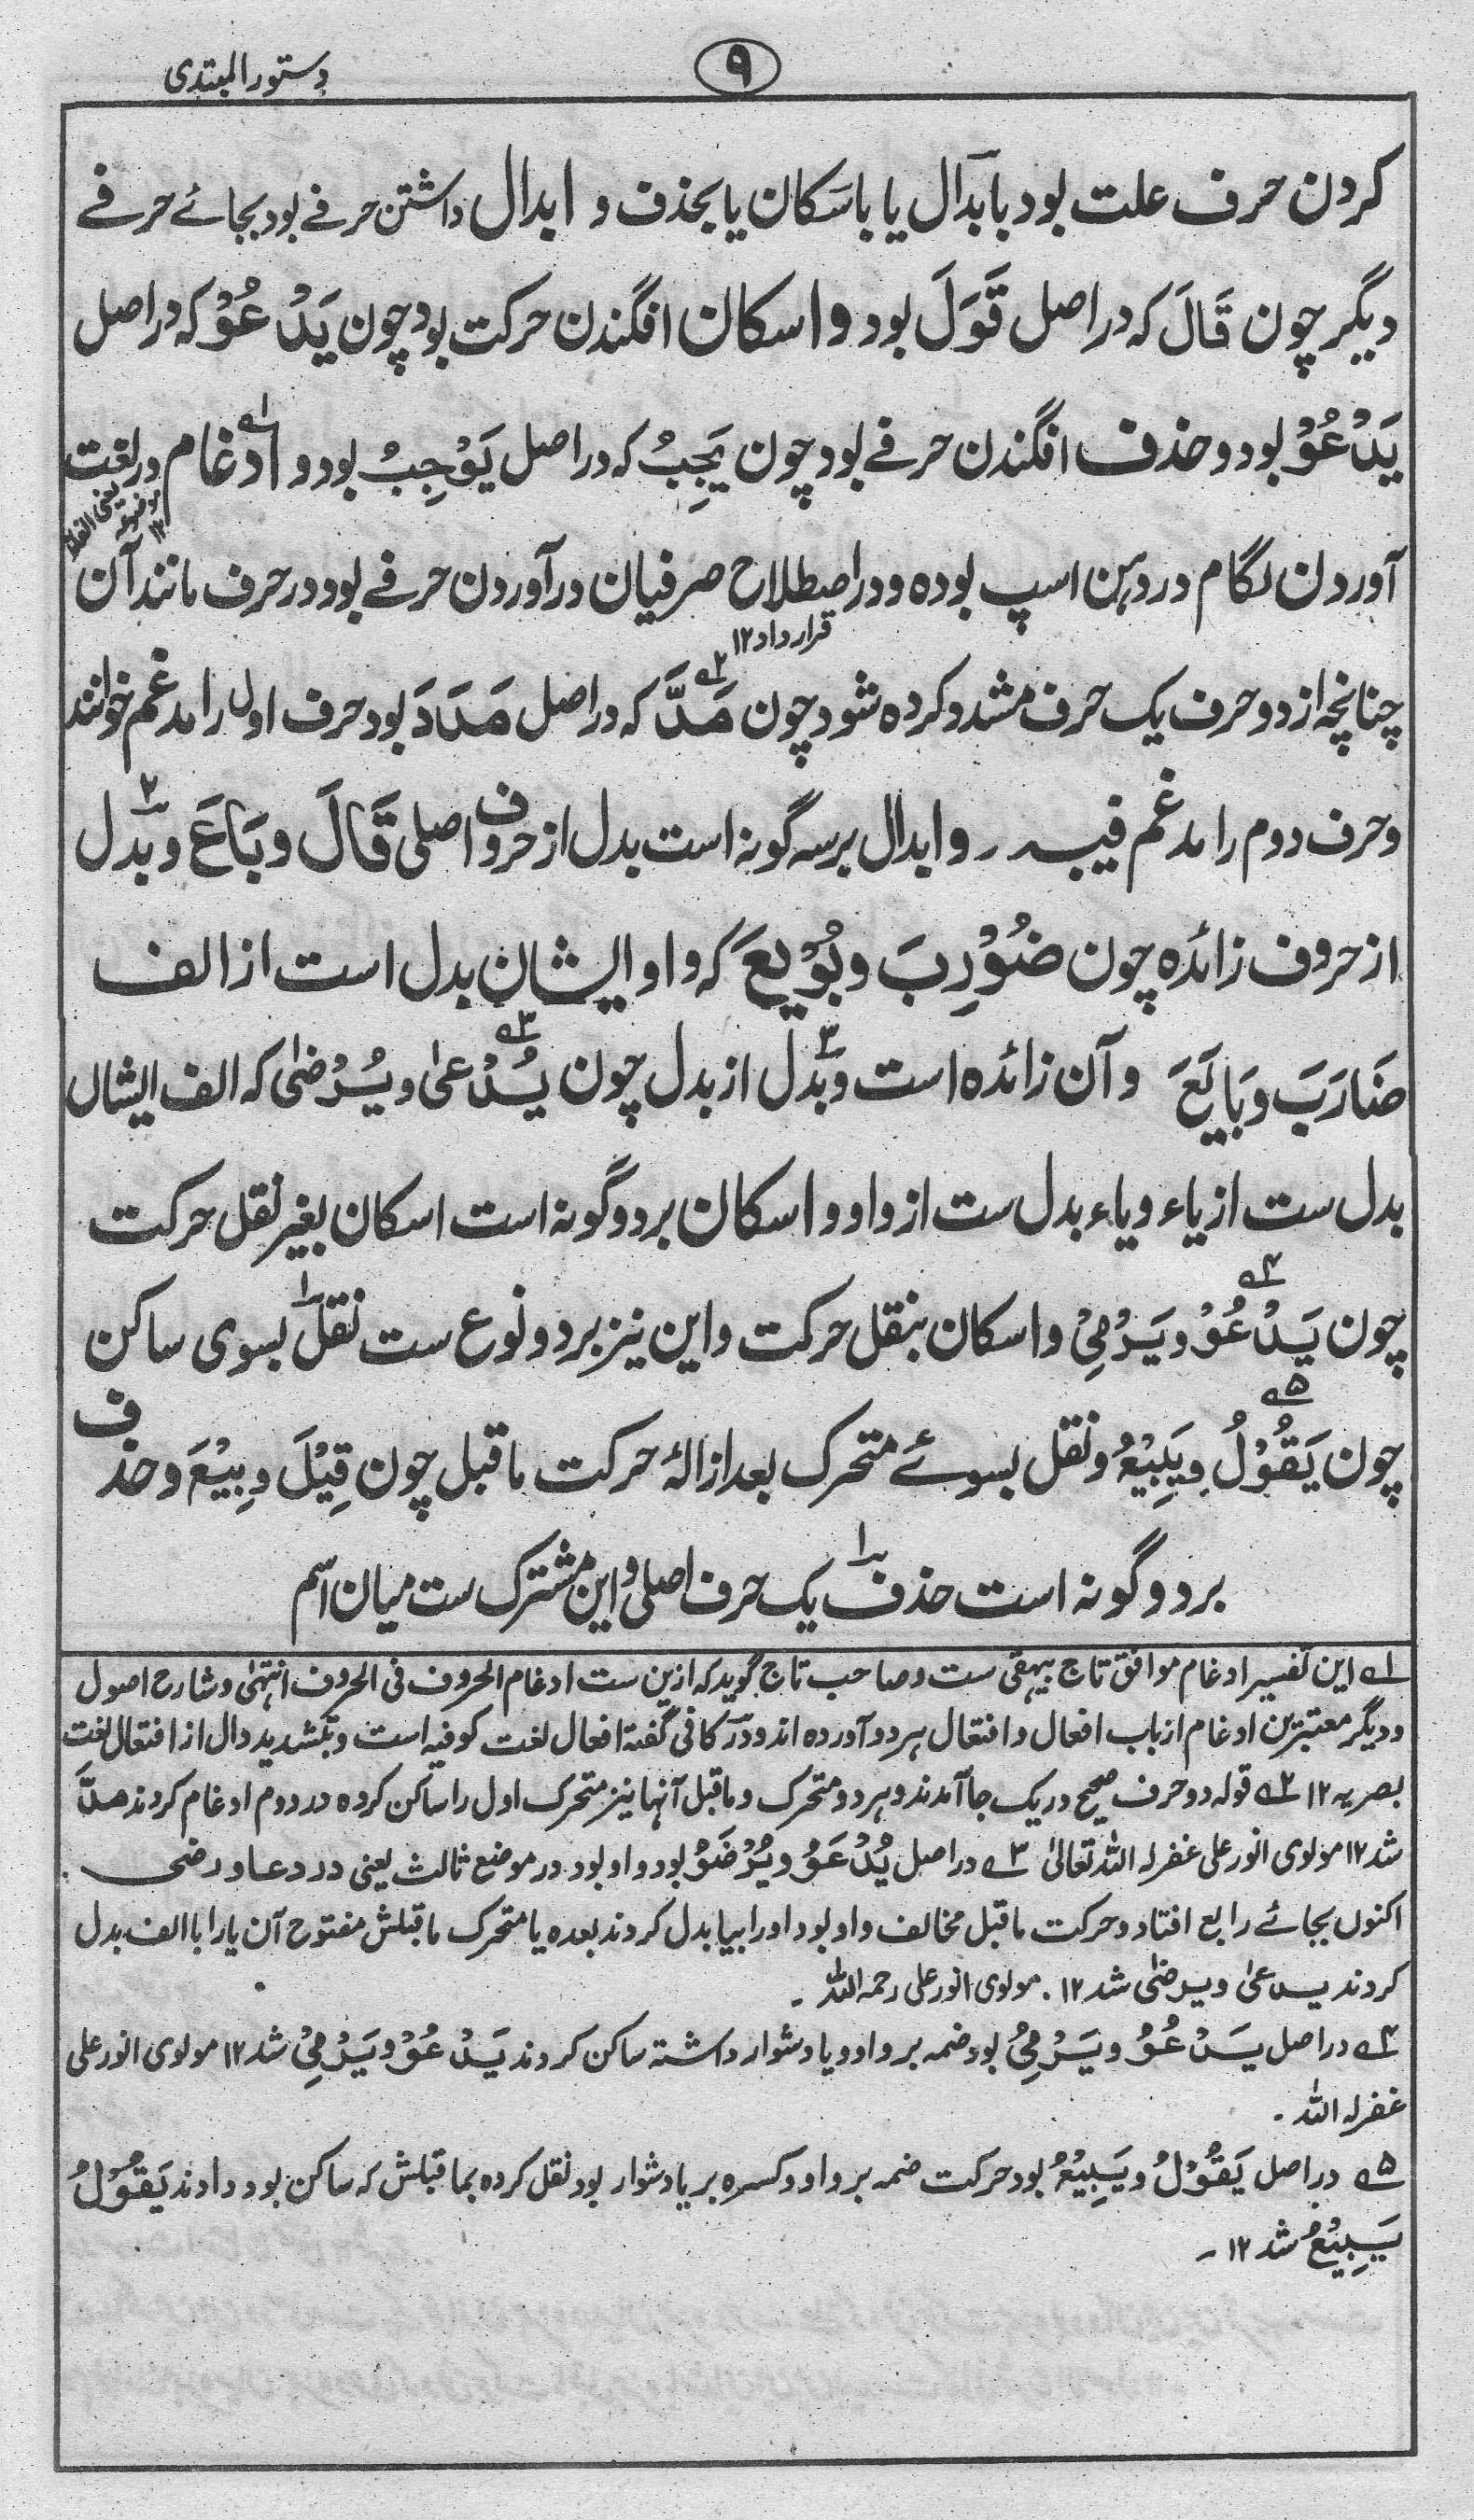 دستور المبتدی
۹
کردن حرف علت بود بابدال یا باسکان یا بحذف و ابدال داشتن حرفے بود بجائے حرفے
دیگر چون قَالَ که در اصل قَوَلَ بود و اسکان افگندن حرکت بود چون یَدْعُوْ که در اصل
یَدْعُوُ بود و حذف افگندن حرفے بود چون یَجِبُ که در اصل یَوْجِبُ بود و ادغام در لغت
آوردن لگام در دہن اسپ بوده و در اصطلاح صرفیان در آوردن حرفے بود در حرف مانند آن
قرار داد ۱۲
چنانچه از دو حرف یک حرف مشدد کرده شود چون مَدَّ که در اصل مَدَدَ بود حرف اول را مدغم خوانند
و حرف دوم را مدغم فیه ۔ و ابدال بر سه گونه است بدل از حروف اصلی قَالَ و بَاعَ و بدل
از حروف زائده چون ضُوْرِبَ و بُوْیِعَ که واو ایشان بدل است از الف
ضَارَبَ و بَایَعَ و آن زائده است و بدل از بدل چون یُدْعیٰ و یُرْضیٰ که الف ایشاں
بدل ست از یاء و یاء بدل ست از واو و اسکان بر دو گونه است اسکان بغیر نقل حرکت
چون یَدْعُوْ و یَرْمِیْ و اسکان بنقل حرکت و این نیز بر دو نوع ست نقل بسوی ساکن
چون یَقُوْلُ و یَبِیْعُ و نقل بسوئے متحرک بعد ازالۂ حرکت ما قبل چون قِیْلَ و بِیْعَ و حذف
بر دو گونه است حذف یک حرف اصلی و این مشترک ست میان اسم
۱ این تفسیر ادغام موافق تاج بیہقی ست و صاحب تاج گوید که ازین ست ادغام الحروف فی الحروف انتہیٰ و شارح اصول
و دیگر معتبرین ادغام از باب افعال و افتعال ہر دو آورده اند و در کافی گفته افعال لغت کوفیه است و بتشدید دال از افتعال لغت
بصریه ۱۲ ۲ قوله دو حرف صحیح در یک جا آمدند و ہر دو متحرک و ما قبل آنہا نیز متحرک اول را ساکن کرده در دوم ادغام کردند مدَّ
شد ۱۲ مولوی انور علی غفر له اللہ تعالیٰ ۳ در اصل یُدْعَوُ و یُرْضَوُ بود واو بود در موضع ثالث یعنی در دعا و رضی
اکنوں بجائے رابع افتاد و حرکت ما قبل مخالف واو بود او را بیا بدل کردند بعده یا متحرک ما قبلش مفتوح آن یا را با الف بدل
کردند یدعیٰ و یرضیٰ شد ۱۲ ۔ مولوی انور علی رحمہ اللہ ۔
۴ در اصل یَدْعُوُ و یَرْمِیُ بود ضمه بر واو و یا دشوار داشته ساکن کردند یَدْعُوْ و یَرْمِیْ شد ۱۲ مولوی انور علی
غفر له اللہ ۔
۵ در اصل یَقْوُلُ و یَبْیِعُ بود حرکت ضمه بر واو و کسره بر یا دشوار بود نقل کرده بما قبلش که ساکن بود دادند یَقُوْلُ
یَبِیْعُ شد ۱۲ ۔